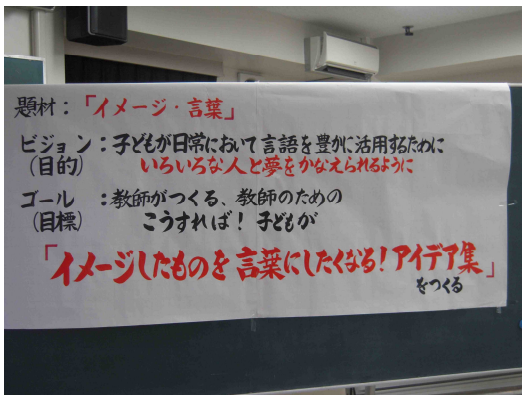 題材：「イメージ・言葉」
ビジョン：子どもが日常において言語を豊かに活用するために
(目的) いろいろな人と夢をかなえられるように
ゴール：教師がつくる、教師のための
(目標) こうすれば！子どもが
「イメージしたものを言葉にしたくなる！アイデア集」
をつくる